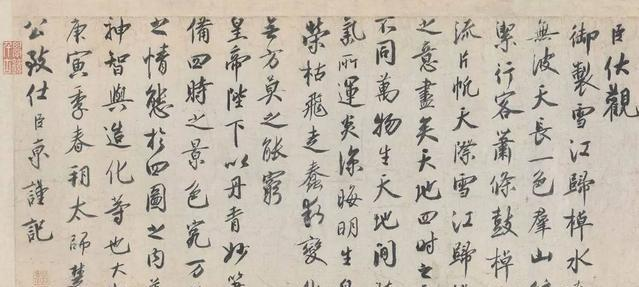 臣伏觀
御製雪江歸棹水
無波天長一色羣山
潔行客蕭條鼓棹
流片帆天際雪江歸
之意盡矣天地四時之
不同萬物生天地間
氣所運炎涼晦明生
榮枯飛走蠢動變化
無方莫之能窮
皇帝陛下以丹青妙筆
備四時之景色究万
之情態於四圖之内
神智與造化等也大
庚寅季春朔太師楚
公致仕臣京謹記